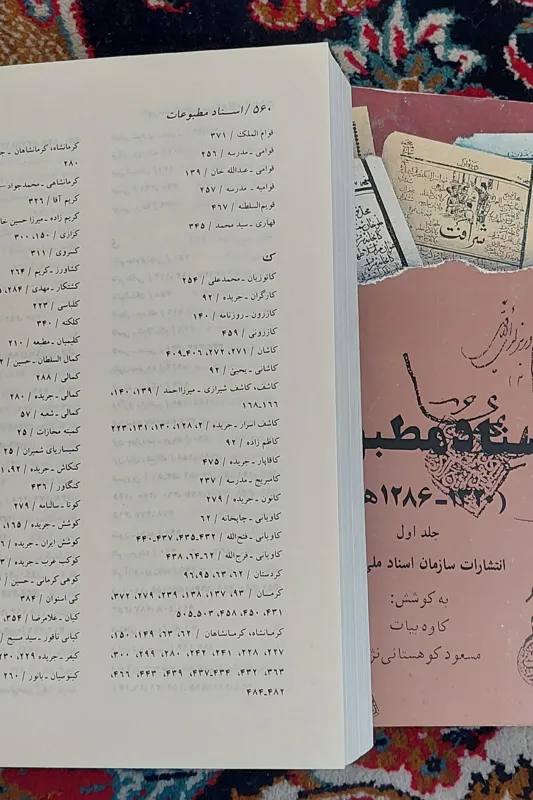 ۵۶۰ / اسناد مطبوعات
قوام الملک / ۳۷۱
قوامی ـ مدرسه / ۲۵۶
قوامی ـ عبدالله خان / ۱۳۹
قوامیه ـ مدرسه / ۲۵۷
قویم‌السلطنه / ۴۶۷
قهاری ـ سید محمد / ۳۴۵
ک
کاتوزیان ـ محمدعلی / ۲۵۴
کارگران ـ جریده / ۹۲
کازرون ـ روزنامه / ۱۴۰
کازرونی / ۴۵۹
کاشان / ۲۷۱، ۲۷۲، ۴۰۶ـ۴۰۹
کاشانی ـ یحیی / ۹۲
کاشف، کاشف شیرازی ـ میرزااحمد / ۱۳۹، ۱۴۰،
۱۶۶ـ۱۶۸
کاشف اسرار ـ جریده / ۰۲، ۱۲۸، ۱۳۰، ۱۳۱، ۲۲۳
کاظم زاده / ۹۲
کاقاپار ـ جریده / ۴۷۵
کامبریج ـ مدرسه / ۲۳۷
کانون ـ جریده / ۲۷۹
کاویانی ـ چاپخانه / ۶۲
کاویانی ـ فتح‌الله / ۴۳۲ـ۴۳۵، ۴۳۷ـ۴۴۰
کاویانی ـ فرج‌الله / ۶۲ـ۶۴، ۴۳۸
کردستان / ۶۲، ۶۳، ۹۵، ۹۶
کرمان / ۹۳، ۱۳۷، ۱۳۸، ۲۳۹، ۲۷۹، ۳۷۲،
۴۳۱، ۴۵۰، ۴۵۸، ۵۰۳ـ۵۰۵
کرمانشاه، کرمانشاهان / ۶۲، ۶۳، ۱۴۹، ۱۵۰،
۲۲۷، ۲۲۸، ۲۴۱، ۲۴۲، ۲۸۰، ۲۹۹، ۳۰۰،
۳۶۳، ۴۳۲، ۴۳۴ـ۴۳۷، ۴۳۹، ۴۴۳، ۴۶۶،
۴۸۲ـ۴۸۴
کرمانشاه، کرمانشاهان ـ
۲۸۰
کرمانشاهی ـ محمدجواد
کریم آقا / ۳۲۶
کریم زاده ـ میرزا حسین
کزازی / ۱۵۰، ۳۰۰
کسروی / ۳۱۱
کشاورز ـ کریم / ۲۶۴
کشتکار ـ مهدی / ۲۸۴،
کلباسی / ۲۲۳
کلکته / ۳۴۰
کلیمیان ـ مطبعه / ۲۱۰
کمال السلطان ـ حسین /
کمالی / ۲۸۸
کمالی ـ جریده / ۲۸۰
کمالی ـ شعبه / ۵۷
کمیته مجازات / ۲۵
کمیساریای شمیران / ۲۵
کنکاش ـ جریده / ۹۲،
کنگاور / ۴۳۶
کوتا ـ سالنامه / ۲۷۹
کوشش ـ جریده / ۱۶۵،
کوشش ایران ـ جریده /
کوکب غرب ـ جریده /
کوهی کرمانی ـ حسین /
کی استوان / ۳۸۴
کیان ـ غلامرضا / ۳۵۴،
کیانی نافور ـ سید مسیح /
کیفر ـ جریده ۲۲۹،
کینوسیان ـ بانور / ۲۶۰
شرافت
اسناد مطبوعات
(۱۲۸۶ـ۱۳۲۰
جلد اول
انتشارات سازمان اسناد ملی
به کوشش:
کاوه بیات
مسعود کوهستانی